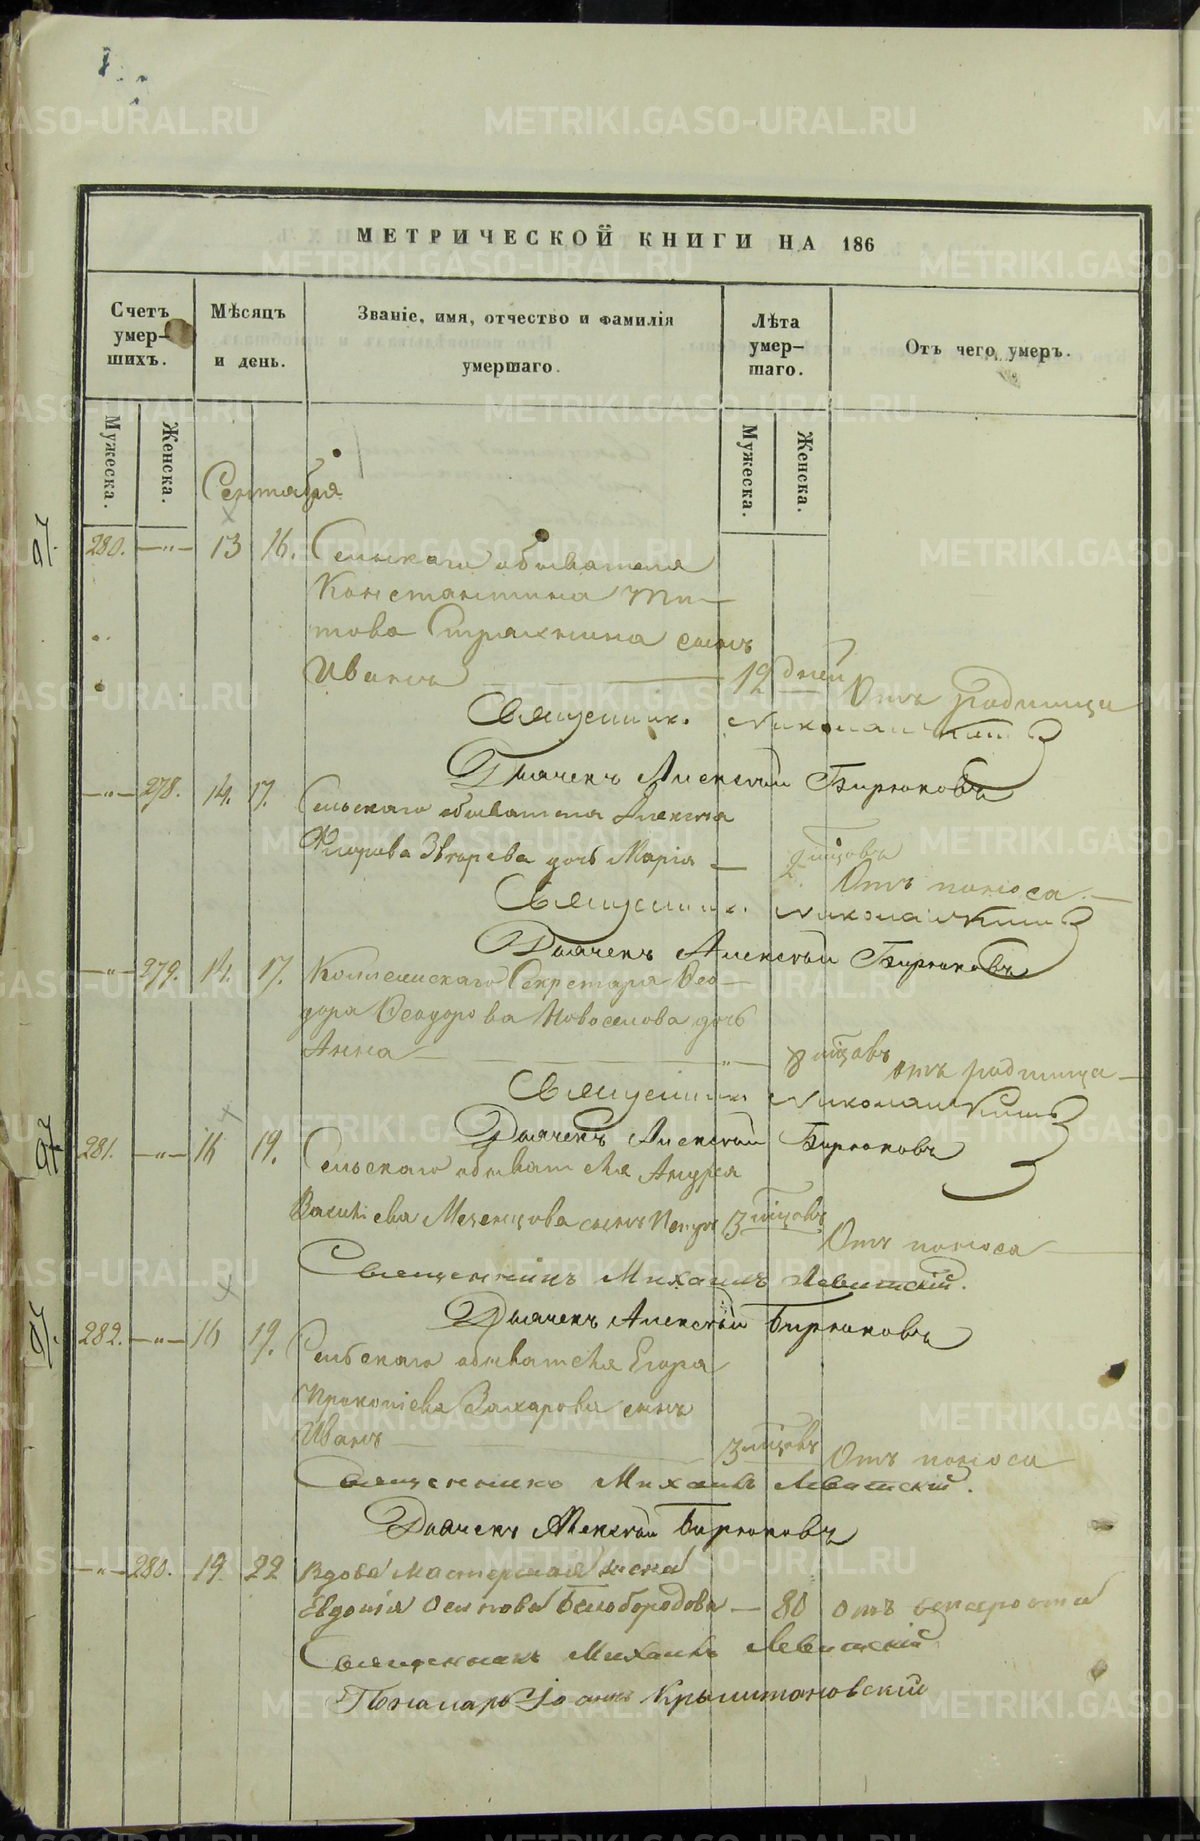 МЕТРИЧЕСКОЙ КНИГИ НА 186
Счетъ умер-шихъ.
Мѣсяцъ и день.
Званіе, имя, отчество и фамилія умершаго.
Лѣта умер-шаго.
Отъ чего умеръ.
Мужеска. Женска. Мужеска. Женска.
Сентября
280. —„— 13 16. Сельскаго обывателя
Константина Ти-
това Стражнина сынъ
Иванъ 12 дней Отъ родимца
Священникъ Николай
Дьячекъ Алексѣй Бирюковъ
—„— 278. 14. 17. Сельскаго обывателя Алексѣя
Флорова Звѣрева дочь Марія — 2 мѣсяцовъ
Отъ поноса
Священникъ Николай
Дьячекъ Алексѣй Бирюковъ
—„— 279. 14. 17. Коллежскаго Секретаря Ѳео-
дора Ѳеодорова Новоселова дочь
Анна —„— 8 мѣсяцовъ отъ родимца
Священникъ Николай
Дьячекъ Алексѣй Бирюковъ
281. —„— 16 19. Сельскаго обывателя Андрея
Василіева Мезенцова сынъ Петръ 3 мѣсяцовъ
Отъ поноса
Священникъ Михаилъ Левитскій.
Дьячекъ Алексѣй Бирюковъ
282. —„— 16 19. Сельскаго обывателя Егора
Прокопіева Захарова сынъ
Иванъ 3 мѣсяцовъ Отъ поноса
Священникъ Михаилъ Левитскій.
Дьячекъ Алексѣй Бирюковъ
—„— 280. 19. 22 Вдова мастерская жена
Евдокія Осипова Белобородова — 80 отъ старости
Священникъ Михаилъ Левитскій
Пономарь Іоаннъ Крыштановскій
METRIKI.GASO-URAL.RU